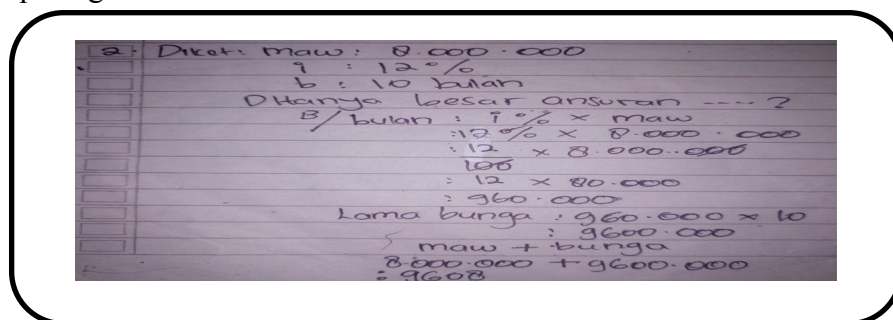 2. Diket: maw: 8.000.000
i : 12%
b : 10 bulan
DHanya besar ansuran ----?
B/bulan : i % x maw
: 12 % x 8.000.000
: 12 x 8.000.000
100
: 12 x 80.000
: 960.000
Lama bunga : 960.000 x 10
: 9600.000
maw + bunga
8.000.000 + 9600.000
: 9608